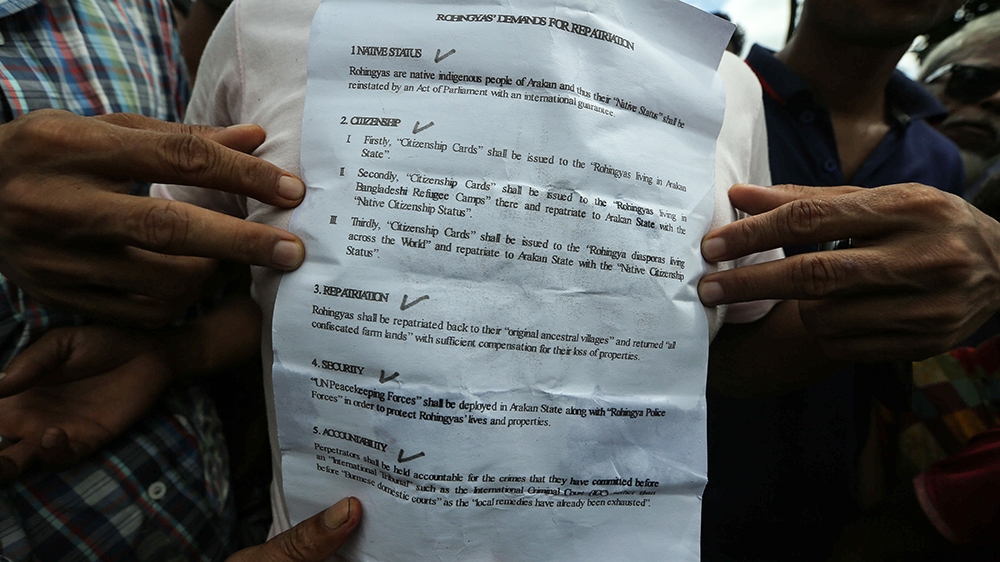 ROHINGYAS' DEMANDS FOR REPATRIATION
1 NATIVE STATUS
Rohingyas are native indigenous people of Arakan and thus their "Native Status" shall be
reinstated by an Act of Parliament with an international guarantee.
2. CITIZENSHIP
I Firstly, "Citizenship Cards" shall be issued to the "Rohingyas living in Arakan
State".
II Secondly, "Citizenship Cards" shall be issued to the "Rohingyas living in
Bangladeshi Refugee Camps" there and repatriate to Arakan State with the
"Native Citizenship Status".
III Thirdly, "Citizenship Cards" shall be issued to the "Rohingya diasporas living
across the World" and repatriate to Arakan State with the "Native Citizenship
Status".
3. REPATRIATION
Rohingyas shall be repatriated back to their "original ancestral villages" and returned "all
confiscated farm lands" with sufficient compensation for their loss of properties.
4. SECURITY
"UN Peacekeeping Forces" shall be deployed in Arakan State along with "Rohingya Police
Forces" in order to protect Rohingyas' lives and properties.
5. ACCOUNTABILITY
Perpetrators shall be held accountable for the crimes that they have committed before
an "International Tribunal" such as the International Criminal Court (ICC) rather than
before "Burmese domestic courts" as the "local remedies have already been exhausted".